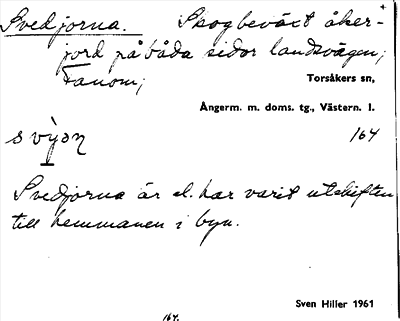 Svedjorna. Skogbeväxt åker-
jord på båda sidor landsvägen;
Fanom;
Torsåkers sn,
Ångerm. m. doms. tg., Västern. l.
164
Svedjorna är el. har varit utskiften
till hemmanen i byn.
Sven Hiller 1961
164.